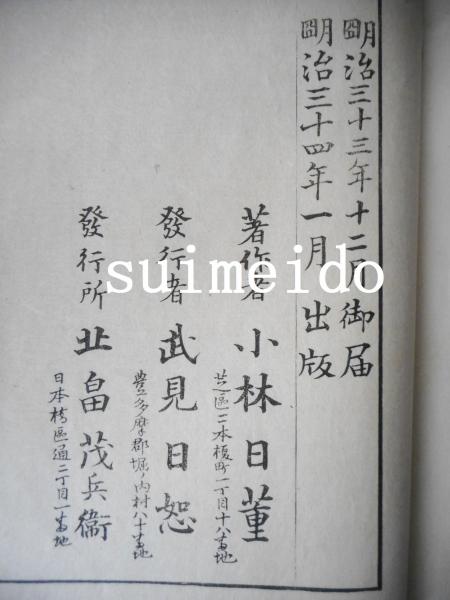 明治三十三年十二月御届
明治三十四年一月 出版
著作者 小林日董
芝區二本榎町一丁目十八番地
發行者 武見日恕
豊多摩郡堀ノ内村八十番地
發行所 北畠茂兵衛
日本橋區通二丁目一番地
suimeido